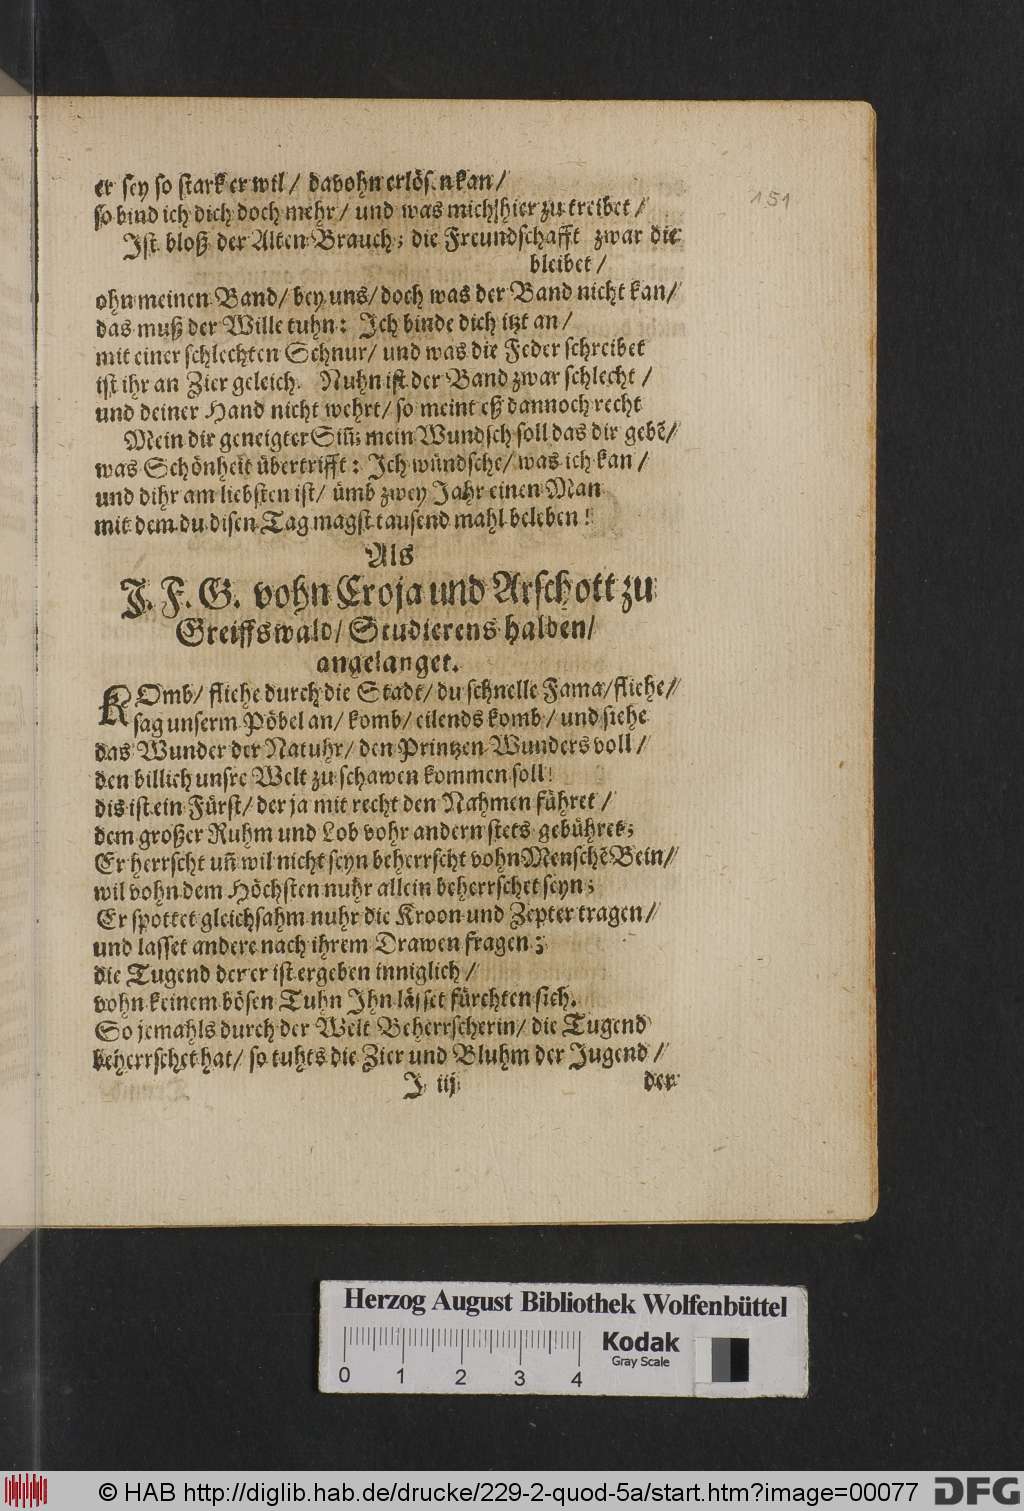 er sey so stark er wil / davohn erlösen kan /
so bind ich dich doch mehr / und was mich hier zu treibet /
Ist bloß der Alten Brauch; die Freundschafft zwar die
bleibet /
ohn meinen Band / bey uns / doch was der Band nicht kan /
das muß der Wille tuhn: Ich binde dich itzt an /
mit einer schlechten Schnur / und was die Feder schreibet
ist ihr an Zier geleich. Nuhn ist der Band zwar schlecht /
und deiner Hand nicht wehrt / so meint eß dannoch recht
Mein dir geneigter Siñ; mein Wundsch soll das dir gebẽ /
was Schönheit übertrifft: Ich wündsche / was ich kan /
und dihr am liebsten ist / ümb zwey Jahr einen Man
mit dem du disen Tag magst tausend mahl beleben!
Als
J. F. G. vohn Croja und Arschott zu
Greiffswald / Studierens halben /
angelanget.
KOmb / fliehe durch die Stadt / du schnelle Fama / fliehe /
sag unserm Pöbel an / komb / eilends komb / und siehe
das Wunder der Natuhr / den Printzen Wunders voll /
den billich unsre Welt zu schawen kommen soll!
dis ist ein Fürst / der ja mit recht den Nahmen führet /
dem großer Ruhm und Lob vohr andern stets gebühret;
Er herrscht uñ wil nicht seyn beherrscht vohn Menschẽ Bein /
wil vohn dem Höchsten nuhr allein beherrschet seyn;
Er spottet gleichsahm nuhr die Kroon und Zepter tragen /
und lasset andere nach ihrem Drawen fragen;
die Tugend der er ist ergeben inniglich /
vohn keinem bösen Tuhn Ihn lässet fürchten sich.
So jemahls durch der Welt Beherrscherin / die Tugend
beherrschet hat / so tuhts die Zier und Bluhm der Jugend /
J iij
der
151
Herzog August Bibliothek Wolfenbüttel
Kodak
Gray Scale
0 1 2 3 4
© HAB http://diglib.hab.de/drucke/229-2-quod-5a/start.htm?image=00077
DFG